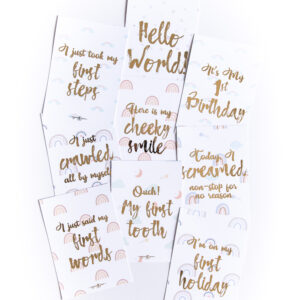 I just took my
first
steps.
Hello
World!
It's My
1st
Birthday
I just
crawled
all by myself
Here is my
cheeky
smile
Today I
screamed
non-stop for
no reason.
I just said my
first
words
Ouch!
My first
tooth
I'm on my
first
holiday